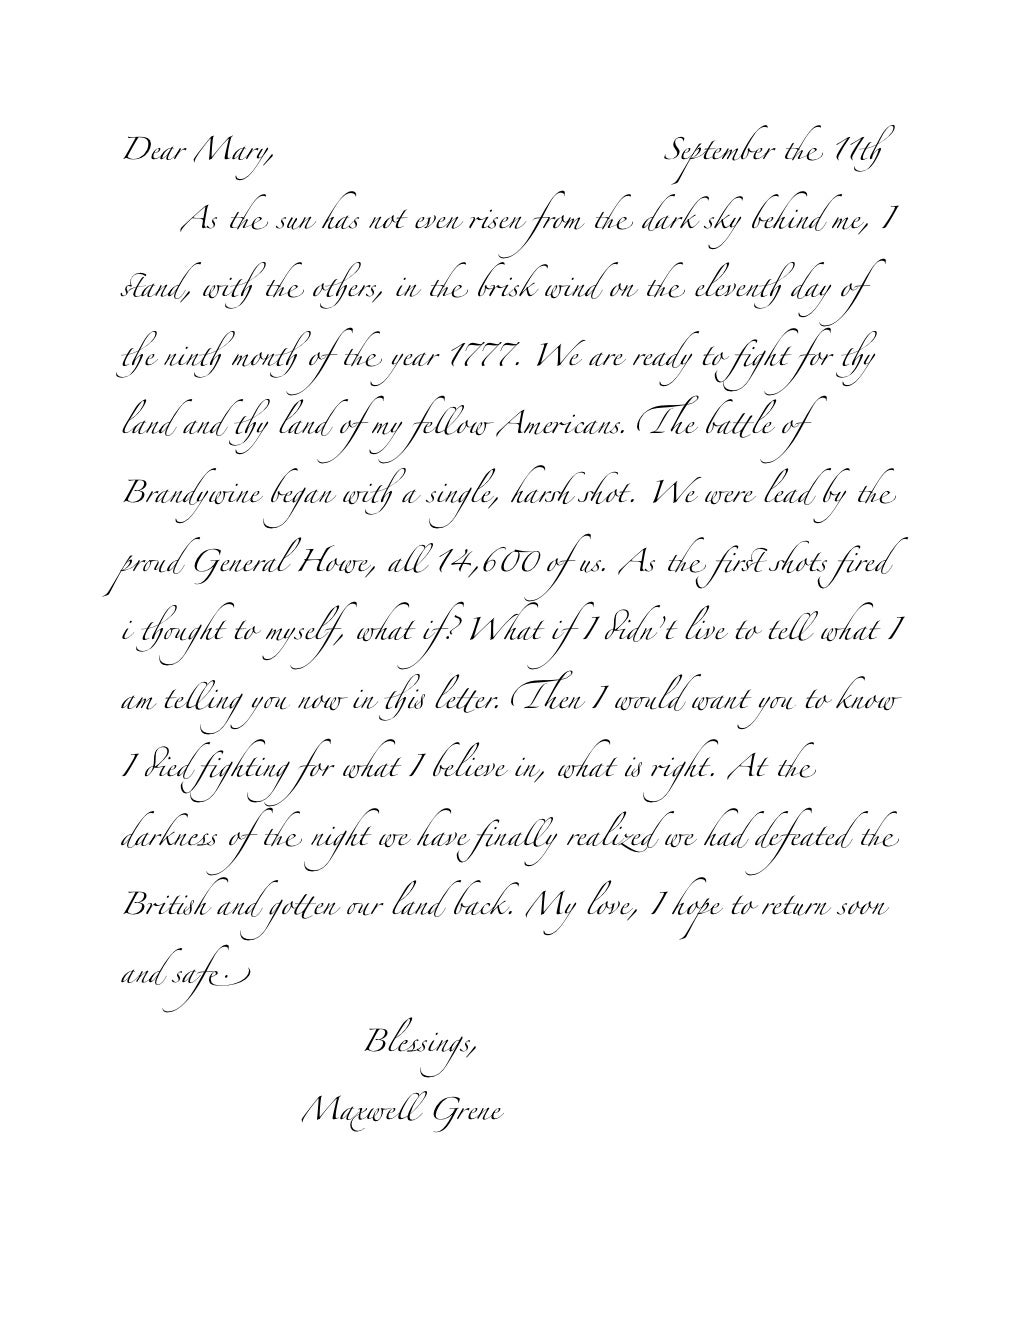 Dear Mary, September the 11th
As the sun has not even risen from the dark sky behind me, I
stand, with the others, in the brisk wind on the eleventh day of
the ninth month of the year 1777. We are ready to fight for thy
land and thy land of my fellow Americans. The battle of
Brandywine began with a single, harsh shot. We were lead by the
proud General Howe, all 14,600 of us. As the first shots fired
i thought to myself, what if? What if I didn't live to tell what I
am telling you now in this letter. Then I would want you to know
I died fighting for what I believe in, what is right. At the
darkness of the night we have finally realized we had defeated the
British and gotten our land back. My love, I hope to return soon
and safe.
Blessings,
Maxwell Grene